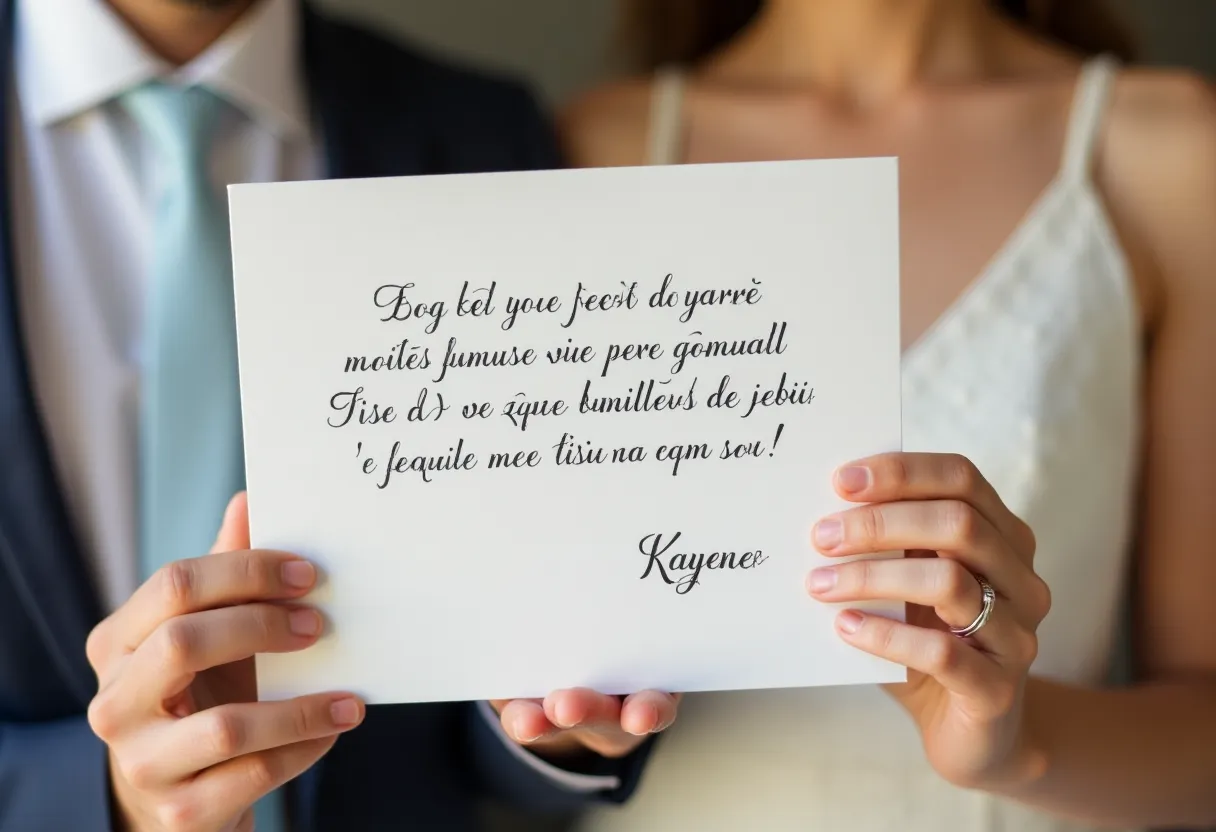 Bog kel youe feest do yarrè
moitēs fumuse viie pere gōmuall
Tise d ve zque bumillēus de jebiii
'e fequile mee tisiu na cqm sou!
Kayenee